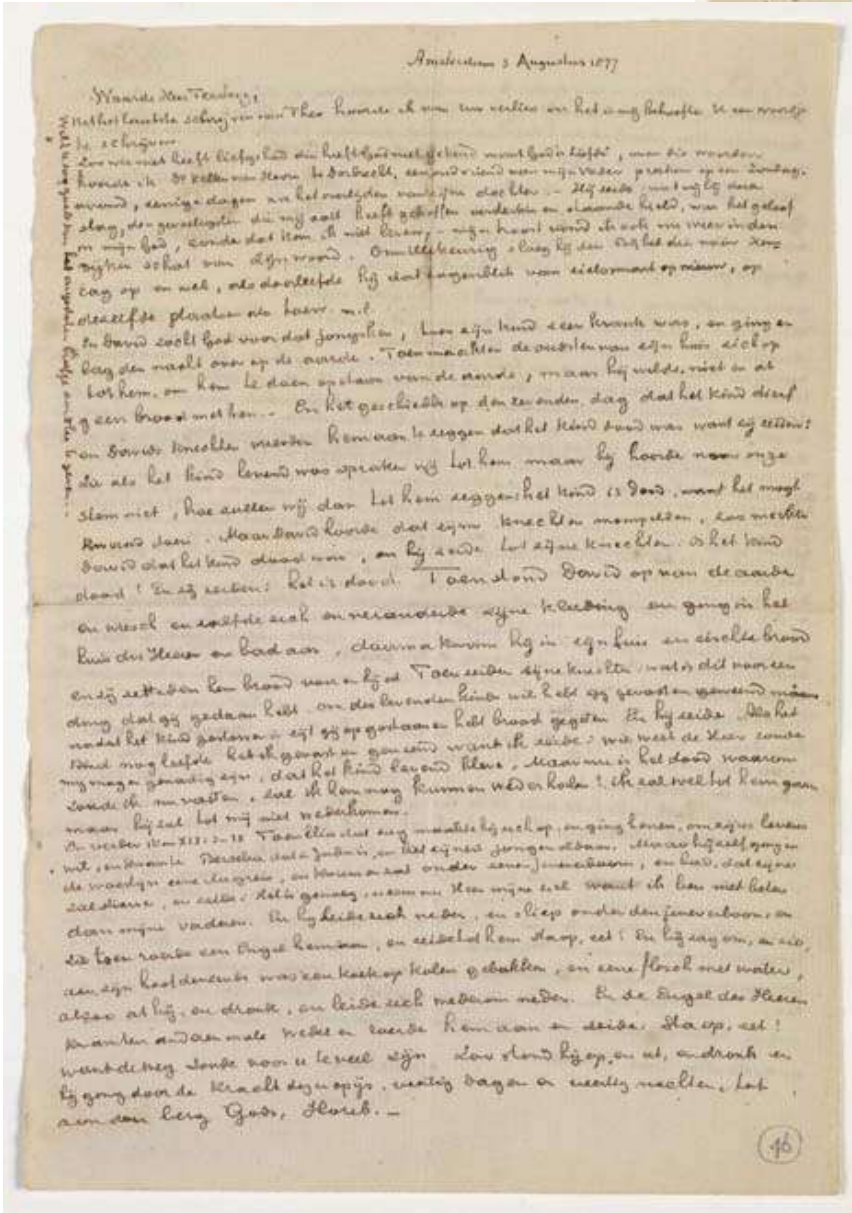 Amsterdam 3 Augustus 1877
Waarde Heer Tersteeg,
schrijven van Theo hoorde ik van Uw verlies en het is mij behoefte U een woordje
te schrijven
Zoo wie niet heeft liefgehad die heeft God niet gekend want God is liefde, van die woorden
hoorde ik Ds Keller van Hoorn te Dordrecht, een oud vriend van mijn vader preeken op een Zondag-
avond, eenige dagen na het overlijden van zijne dochter. – Hij zeide, wat mij bij dien
slag, den gevoeligsten die mij ooit heeft getroffen staande hield, was het geloof
in mijn God, zonder dat kon ik niet leven, – mijn troost vond ik ook nu weer in den
rijken schat van Zijn woord. Onwillekeurig sloeg hij den
oog op en wel, als doorleefde hij dat oogenblik van zielsmart opnieuw, op
dezelfde plaatsen als toen n.l.
En David zocht God voor dat jongsken, toen zijn kind zeer krank was, en ging en
lag den nacht over op de aarde. Toen maakten de oudsten van zijn huis zich op
tot hem, om hem te doen opstaan van de aarde, maar hij wilde niet en at
geen brood met hen. – En het geschiedde op den zevenden dag dat het kind stierf
en Davids knechten vreesden hem aan te zeggen dat het kind dood was want zij zeiden:
Zie als het kind levend was spraken wij tot hem maar hij hoorde naar onze
stem niet, hoe zullen wij dan tot hem zeggen: het kind is dood, want het mogt
kwaad doen. Maar David hoorde dat zijne knechten mompelden, zoo merkte
David dat het kind dood was, en hij zeide tot zijne knechten: is het kind
dood? En zij zeiden: het is dood. Toen stond David op van de aarde
en wiesch en zalfde zich en veranderde zijne kleeding en ging in het
huis des Heeren en bad aan, daarna kwam hij in zijn huis en eischte brood
en zij zetteden hem brood voor en hij at. Toen zeiden zijne knechten: wat is dit voor een
ding dat gij gedaan hebt, om des levenden kinds wil hebt gij gevast en geweend maar
nadat het kind gestorven is zijt gij opgestaan en hebt brood gegeten. En hij zeide: Als het
kind nog leefde heb ik gevast en geweend want ik zeide: wie weet de Heer zoude
mij mogen genadig zijn, dat het kind levend bleve. Maar nu is het dood waarom
zoude ik nu vasten, zal ik hem nog kunnen wederhalen? ik zal wel tot hem gaan
maar hij zal tot mij niet wederkomen.
En verder Toen Elia dat zag maakte hij zich op, en ging henen, om zijns levens
wil, en kwam te Berseba, dat in Juda is, en liet zijnen jongen aldaar. Maar hij zelf ging in
de woestijn eene dagreis, en kwam en zat onder eenen jeneverboom, en bad, dat zijne
ziel stierve, en zeide: Het is genoeg, neem nu Heer mijne ziel want ik ben niet beter
dan mijne vaderen. En hij leide zich neder, en sliep onder den jeneverboom, en
zie toen roerde een Engel hem aan, en zeide tot hem Sta op, eet! En hij zag om, en zie,
aan zijn hoofdeneinde was een koek op kolen gebakken, en eene flesch met water,
alzoo at hij, en dronk, en leide zich wederom neder. En de Engel des Heeren
kwam ten anderen male weder en roerde hem aan en zeide: Sta op, eet!
want de weg zoude voor u te veel zijn. Zoo stond hij op, en at, en dronk en
hij ging door de kracht dezer spijs, veertig dagen en veertig nachten, tot
aan den berg Gods, Horeb. –
46